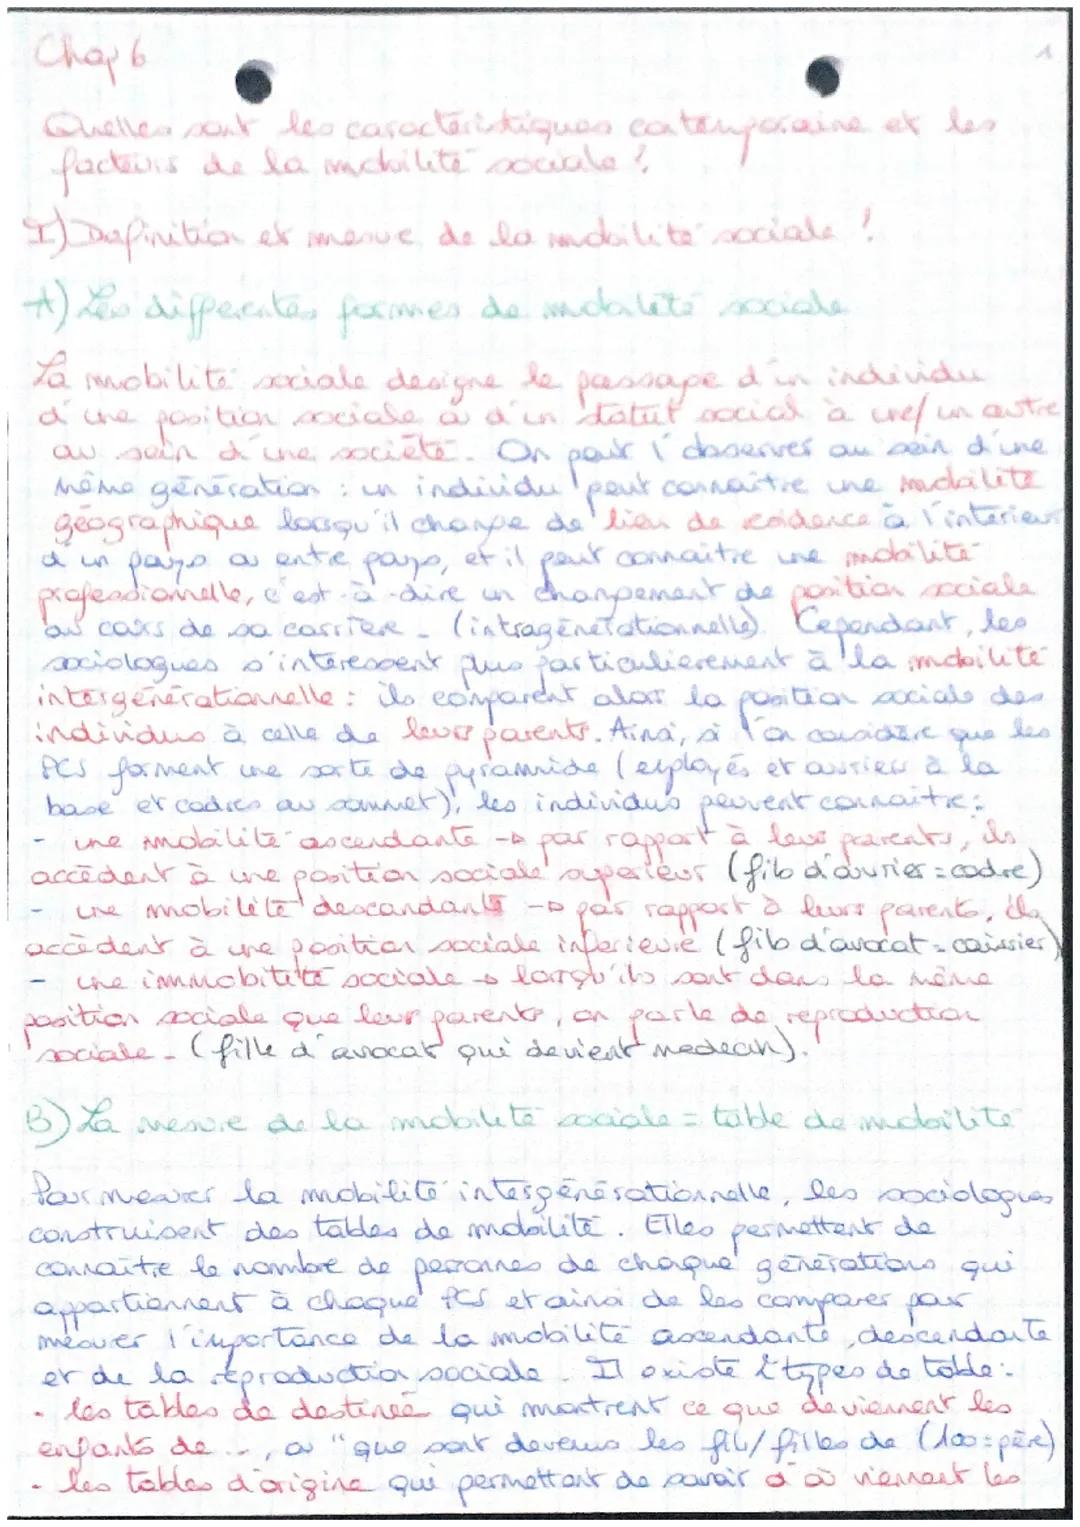 Chap 6
1
Quelles sont les caractéristiques contemporaine et les
facteurs de la mobilité sociale ?
I) Definition et mesure de la mobilité sociale !
A) Les différentes formes de mobilité sociale
La mobilité sociale designe le passage d'un individu
d'une position sociale ou d'un statut social à une/un autre
au sein d'une société. On peut l'observer au sein d'une
même génération : un individu peut connaître une mobilité
géographique lorsqu'il change de lieu de residence à l'intérieur
d'un pays ou entre pays, et il peut connaître une mobilité
professionnelle, c'est-à-dire un changement de position sociale
au cours de sa carrière. (intragénérationnelle). Cependant, les
sociologues s'intéressent plus particulièrement à la mobilité
intergénérationnelle : ils comparent alors la position sociale des
individus à celle de leurs parents. Ainsi, si l'on considère que les
PCS forment une sorte de pyramide (employés et ouvriers à la
base et cadres au sommet), les individus peuvent connaître :
- une mobilité ascendante → par rapport à leurs parents, ils
accèdent à une position sociale supérieur (fils d'ouvrier = cadre)
- une mobilité descandante → par rapport à leurs parents, ils
accèdent à une position sociale inférieure (fils d'avocat = caissier)
- une immobilité sociale → lorsqu'ils sont dans la même
position sociale que leur parents, on parle de reproduction
sociale. (fille d'avocat qui devient medecin).
B) La mesure de la mobilité sociale = table de mobilité
Pour mesurer la mobilité intergénérationnelle, les sociologues
construisent des tables de mobilité. Elles permettent de
connaître le nombre de personnes de chaque générations qui
appartiennent à chaque PCS et ainsi de les comparer pour
mesurer l'importance de la mobilité ascendante, descendante
et de la reproduction sociale. Il existe 2 types de table :
- les tables de destinée qui montrent ce que deviennent les
enfants de ..., ou "que sont devenus les fils/filles de (100=père)
- les tables d'origine qui permettent de savoir d'où viennent les